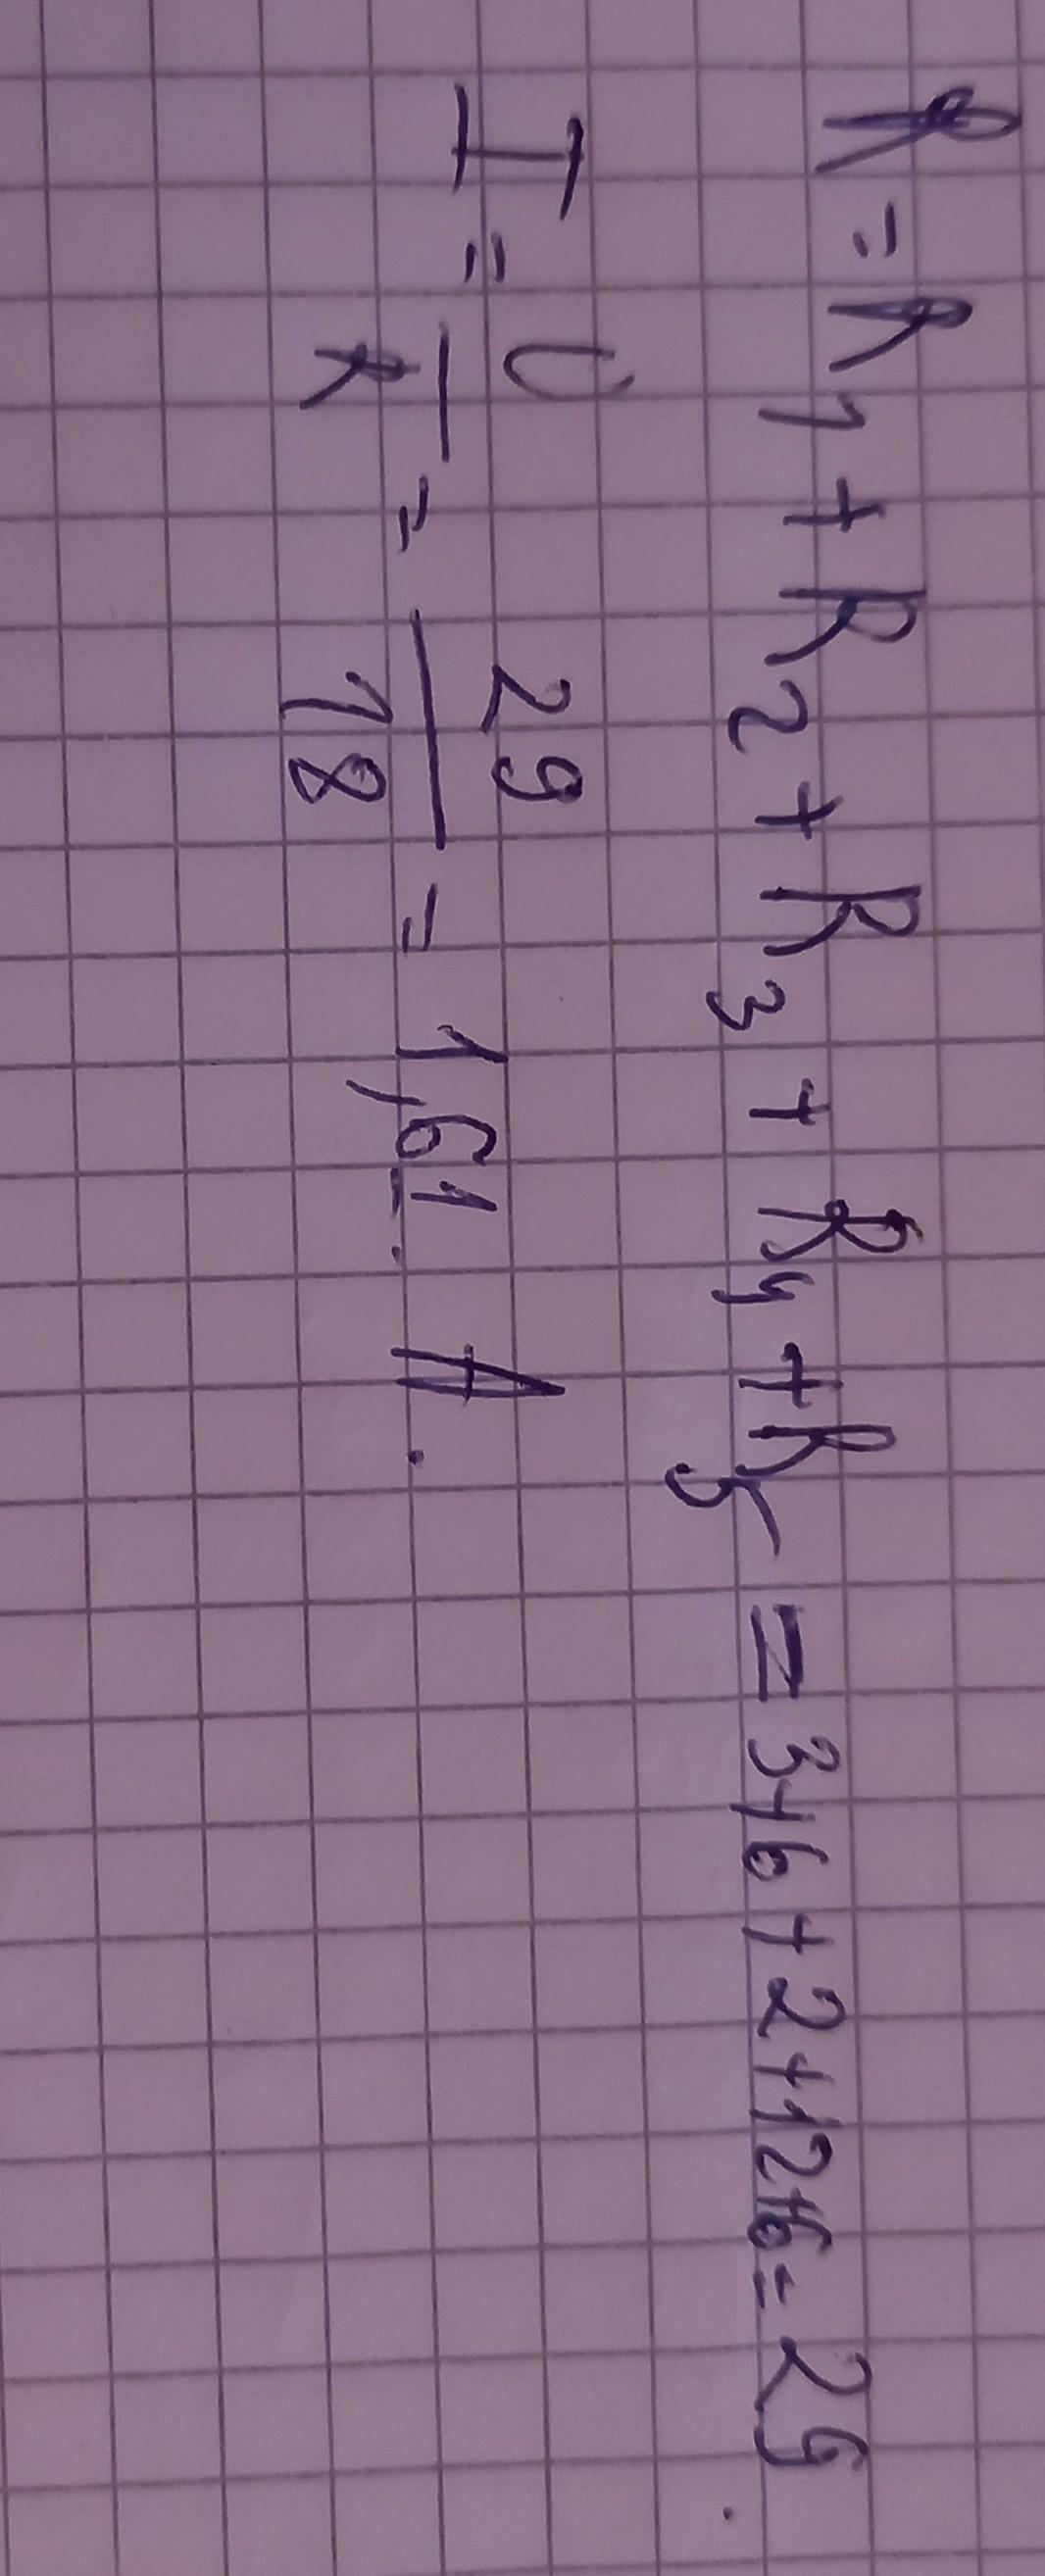 R = R1 + R2 + R3 + R4 + R5 = 3+6+2+12+6 = 29.
I = U/R = 29/18 = 1,61. A.